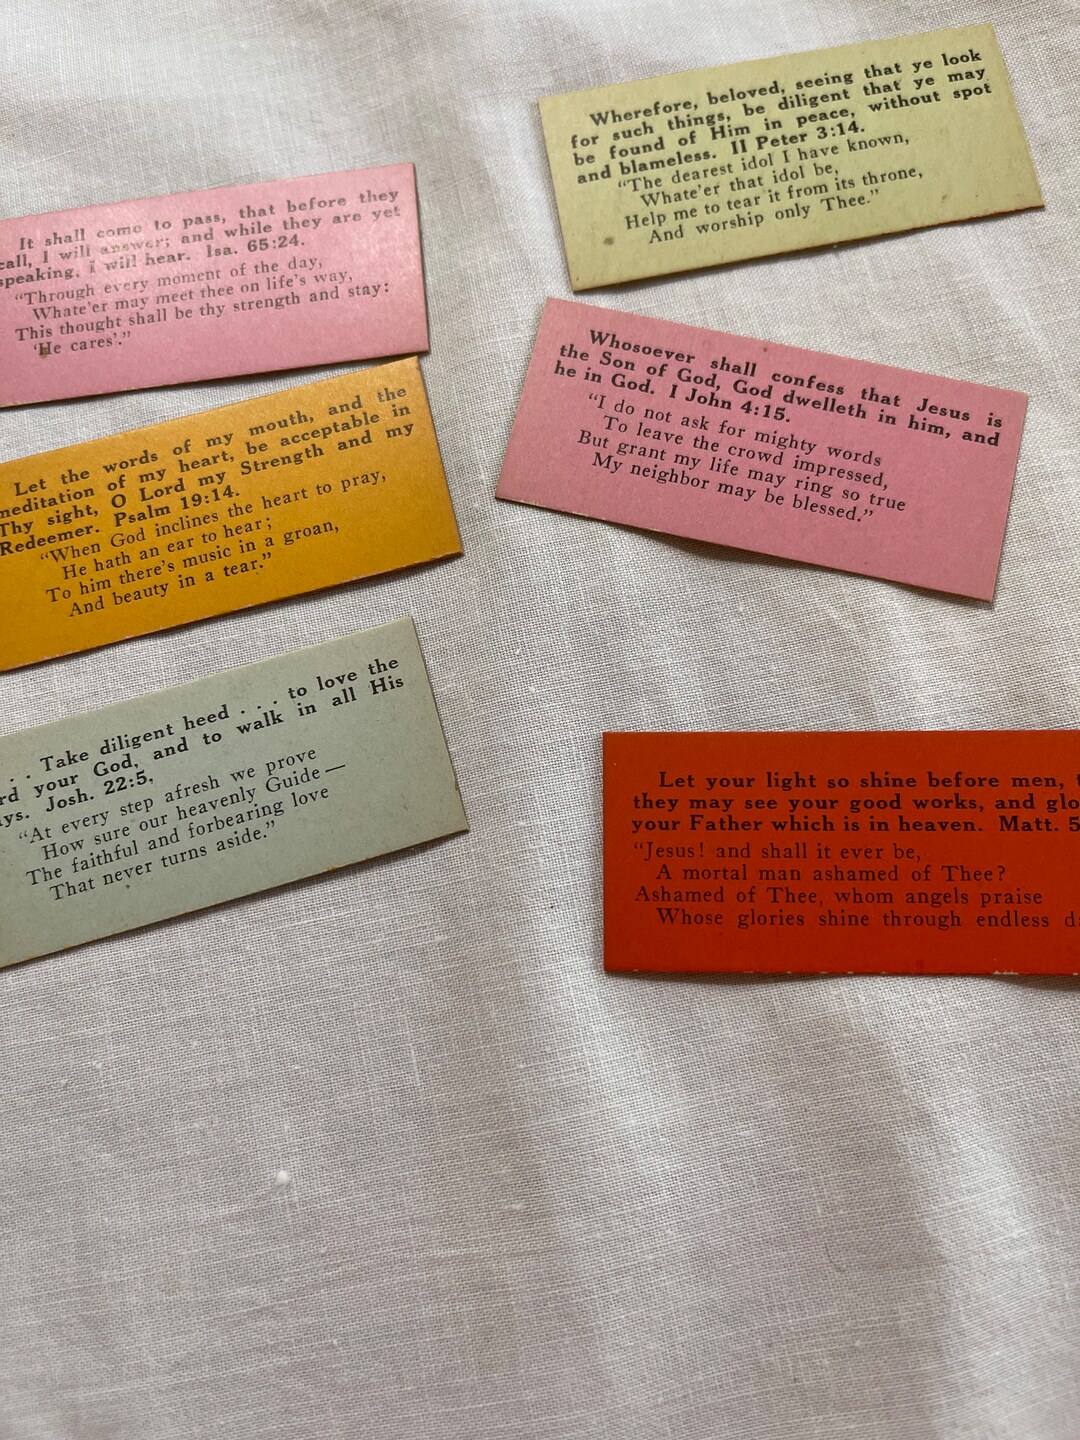 It shall come to pass, that before they
call, I will answer; and while they are yet
speaking, I will hear. Isa. 65:24.
“Through every moment of the day,
Whate’er may meet thee on life’s way,
This thought shall be thy strength and stay:
‘He cares’.”
Let the words of my mouth, and the
meditation of my heart, be acceptable in
Thy sight, O Lord my Strength and my
Redeemer. Psalm 19:14.
“When God inclines the heart to pray,
He hath an ear to hear;
To him there’s music in a groan,
And beauty in a tear.”
. . Take diligent heed . . . to love the
rd your God, and to walk in all His
ys. Josh. 22:5.
“At every step afresh we prove
How sure our heavenly Guide —
The faithful and forbearing love
That never turns aside.”
Wherefore, beloved, seeing that ye look
for such things, be diligent that ye may
be found of Him in peace, without spot
and blameless. II Peter 3:14.
“The dearest idol I have known,
Whate’er that idol be,
Help me to tear it from its throne,
And worship only Thee.”
Whosoever shall confess that Jesus is
the Son of God, God dwelleth in him, and
he in God. I John 4:15.
“I do not ask for mighty words
To leave the crowd impressed,
But grant my life may ring so true
My neighbor may be blessed.”
Let your light so shine before men, t
they may see your good works, and glo
your Father which is in heaven. Matt. 5
“Jesus! and shall it ever be,
A mortal man ashamed of Thee?
Ashamed of Thee, whom angels praise
Whose glories shine through endless d